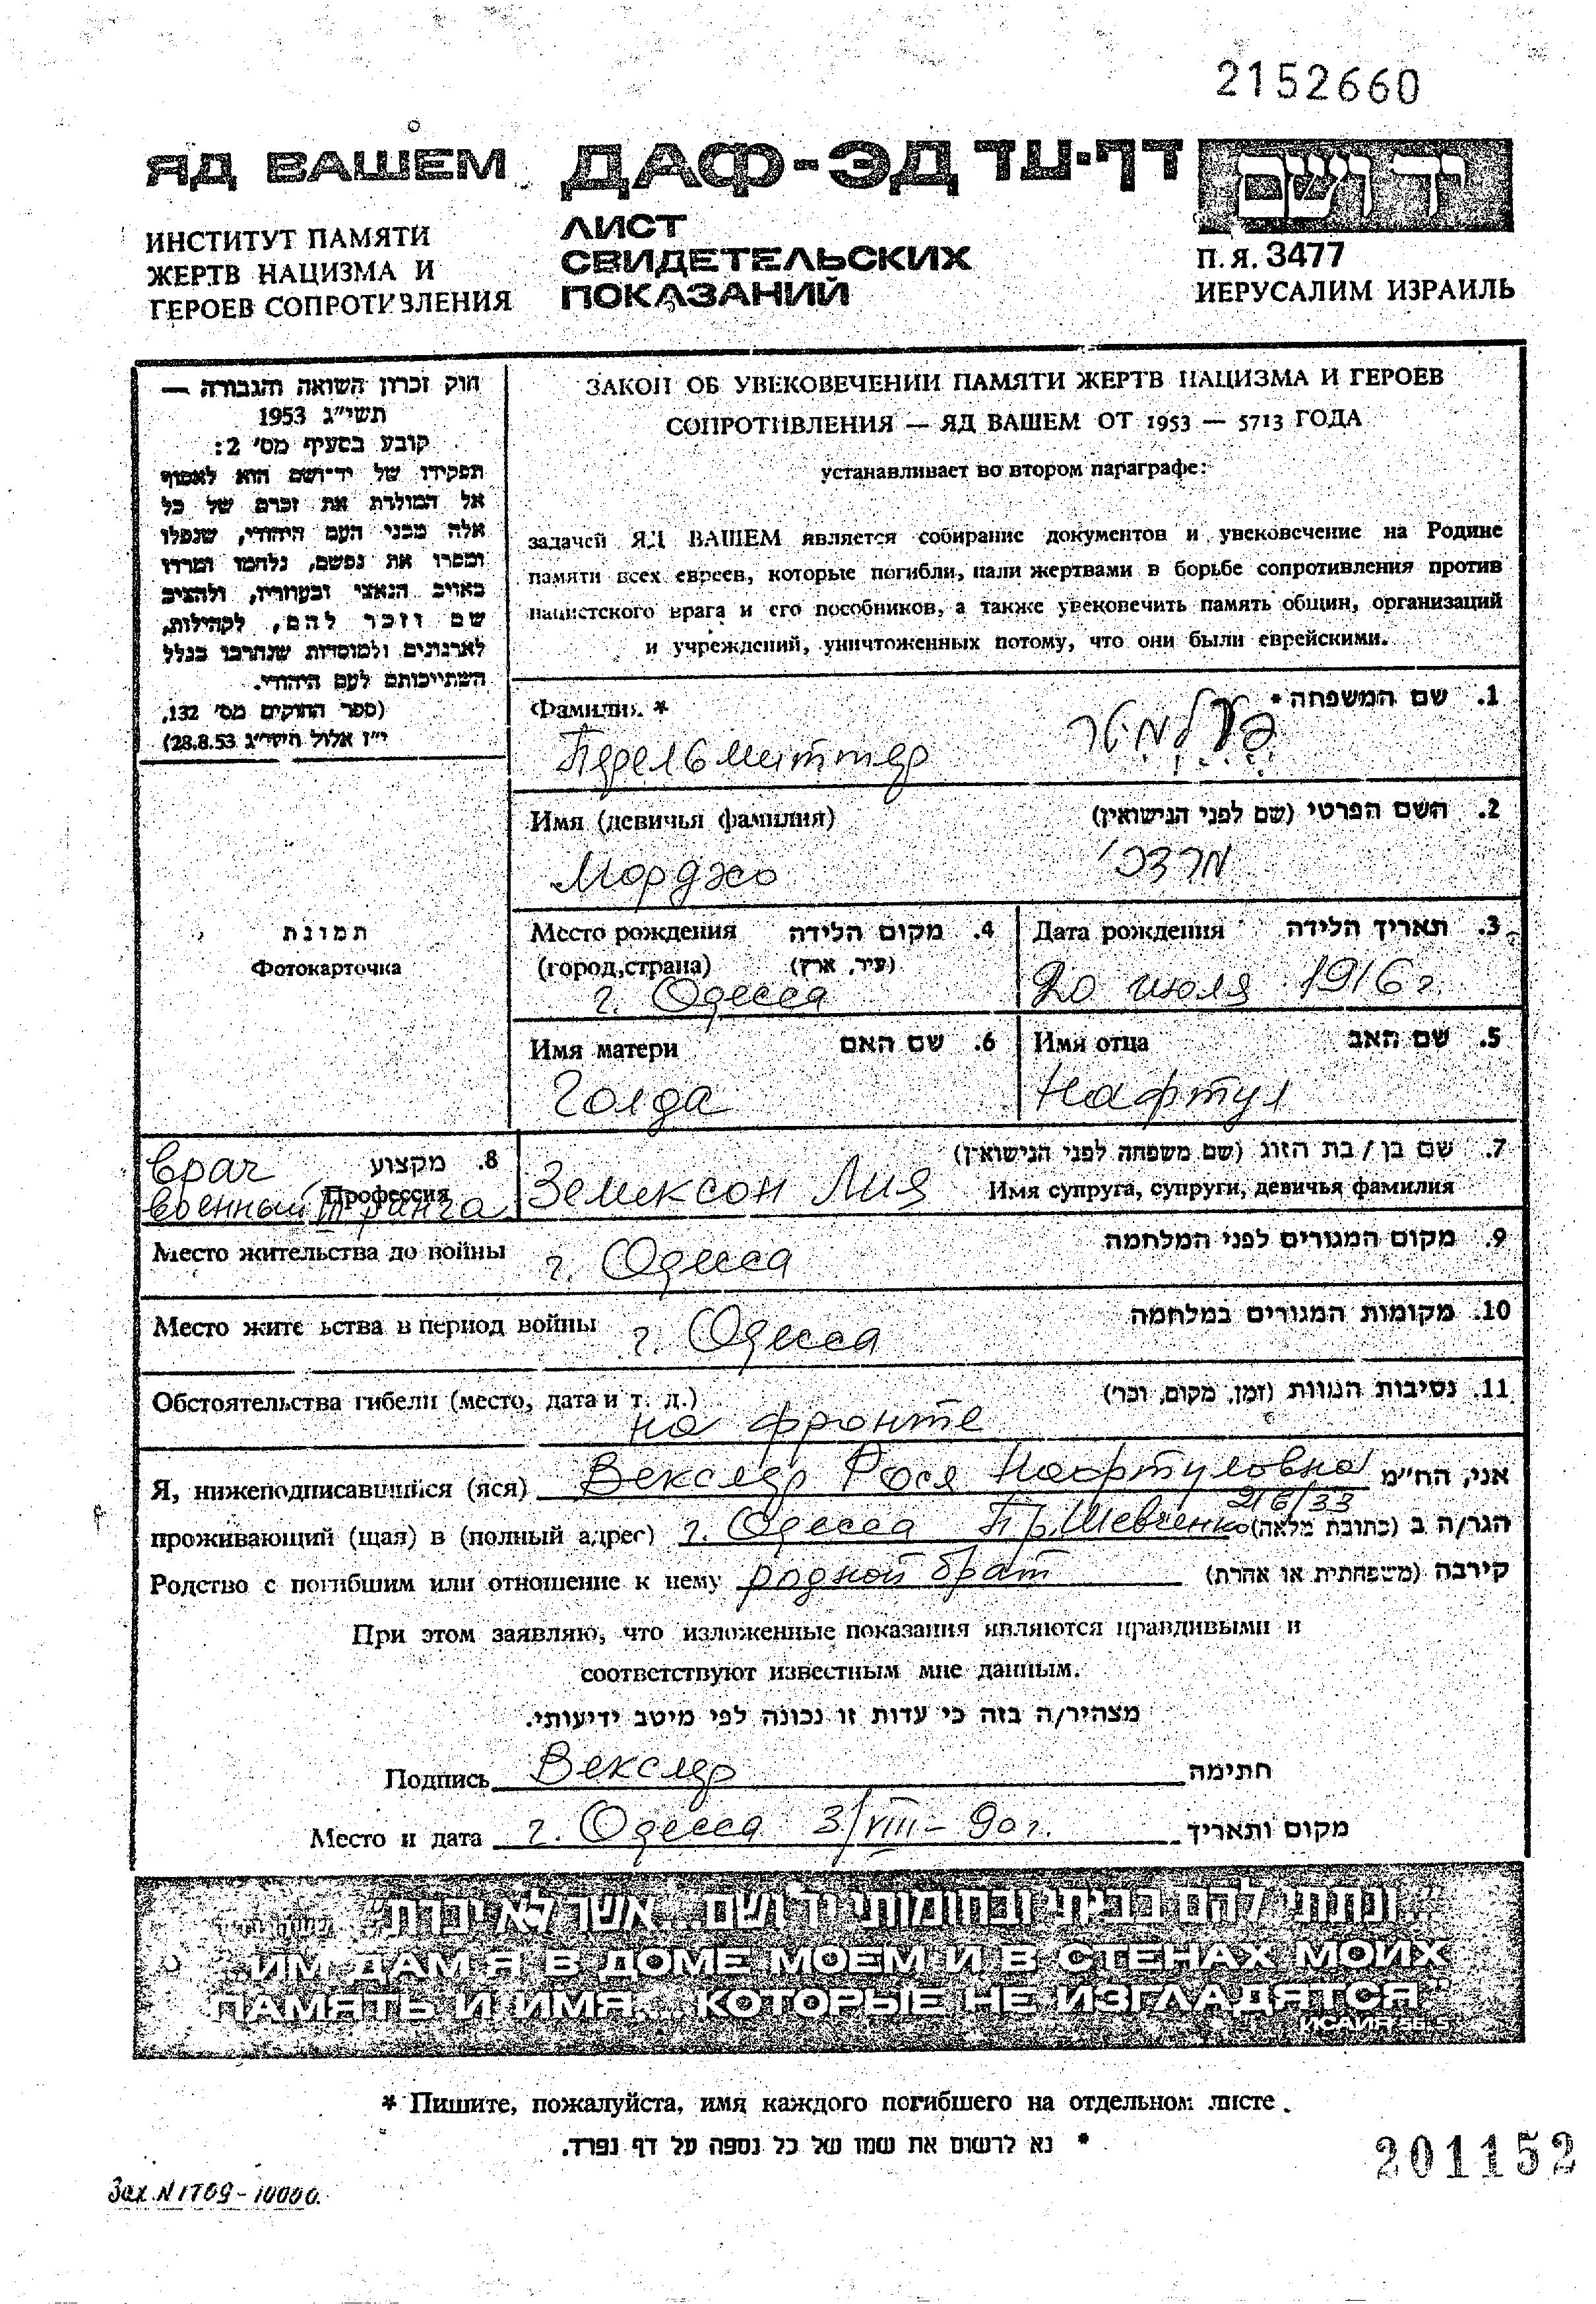 2152660
ЯД ВАШЕМ ДАФ-ЭД דף-עד יד ושם
ИНСТИТУТ ПАМЯТИ
ЖЕРТВ НАЦИЗМА И
ГЕРОЕВ СОПРОТИВЛЕНИЯ
ЛИСТ
СВИДЕТЕЛЬСКИХ
ПОКАЗАНИЙ
П.Я. 3477
ИЕРУСАЛИМ ИЗРАИЛЬ
חוק זכרון השואה והגבורה —
תשי"ג 1953
קובע בסעיף מס' 2:
תפקידו של יד-ושם הוא לאסוף
אל המולדת את זכרם של כל
אלה מבני העם היהודי, שנפלו
ומסרו את נפשם, נלחמו ומרדו
באויב הנאצי ובעוזריו, ולהציב
שם וזכר להם, לקהילות,
לארגונים ולמוסדות שנחרבו בגלל
השתייכותם לעם היהודי.
(ספר החוקים מס' 132,
י"ז אלול תשי"ג 28.8.53)
ЗАКОН ОБ УВЕКОВЕЧЕНИИ ПАМЯТИ ЖЕРТВ НАЦИЗМА И ГЕРОЕВ
СОПРОТИВЛЕНИЯ — ЯД ВАШЕМ ОТ 1953 — 5713 ГОДА
устанавливает во втором параграфе:
задачей ЯД ВАШЕМ является собирание документов и увековечение на Родине
памяти всех евреев, которые погибли, пали жертвами в борьбе сопротивления против
нацистского врага и его пособников, а также увековечить память общин, организаций
и учреждений, уничтоженных потому, что они были еврейскими.
Фамилия * 1. שם המשפחה *
Перельмиттер
Имя (девичья фамилия) 2. השם הפרטי (שם לפני הנישואין)
Морджо מרדכי
תמונה
Фотокарточка
Место рождения 4. מקום הלידה
(город, страна) (עיר, ארץ)
г. Одесса
Дата рождения 3. תאריך הלידה
20 июля 1916 г.
Имя матери 6. שם האם
Голда
Имя отца 5. שם האב
Нафтул
8. מקצוע
Профессия
Врач
военный II ранга
7. שם בן / בת הזוג (שם משפחה לפני הנישואין)
Земексон Лия Имя супруга, супруги, девичья фамилия
Место жительства до войны г. Одесса 9. מקום המגורים לפני המלחמה
Место жительства в период войны г. Одесса 10. מקומות המגורים במלחמה
Обстоятельства гибели (место, дата и т. д.) 11. נסיבות המוות (זמן, מקום, וכו')
на фронте
Я, нижеподписавшийся (яся) Векслер Рося Нафтуловна אני, הח"מ
проживающий (щая) в (полный адрес) г. Одесса Пр. Шевченко 21б/33 הגר/ה ב (כתובת מלאה)
Родство с погибшим или отношение к нему родной брат קירבה (משפחתית או אחרת)
При этом заявляю, что изложенные показания являются правдивыми и
соответствуют известным мне данным.
מצהיר/ה בזה כי עדות זו נכונה לפי מיטב ידיעותי.
Подпись Векслер חתימה
Место и дата г. Одесса 3/VIII – 90 г. מקום ותאריך
"...ונתתי להם בביתי ובחומותי יד ושם... אשר לא יכרת"
"...ИМ ДАМ Я В ДОМЕ МОЕМ И В СТЕНАХ МОИХ
ПАМЯТЬ И ИМЯ... КОТОРЫЕ НЕ ИЗГЛАДЯТСЯ"
ИСАИЯ 56.5
* Пишите, пожалуйста, имя каждого погибшего на отдельном листе.
* נא לרשום את שמו של כל נספה על דף נפרד.
201152
Зах. N 1709 – 10000.